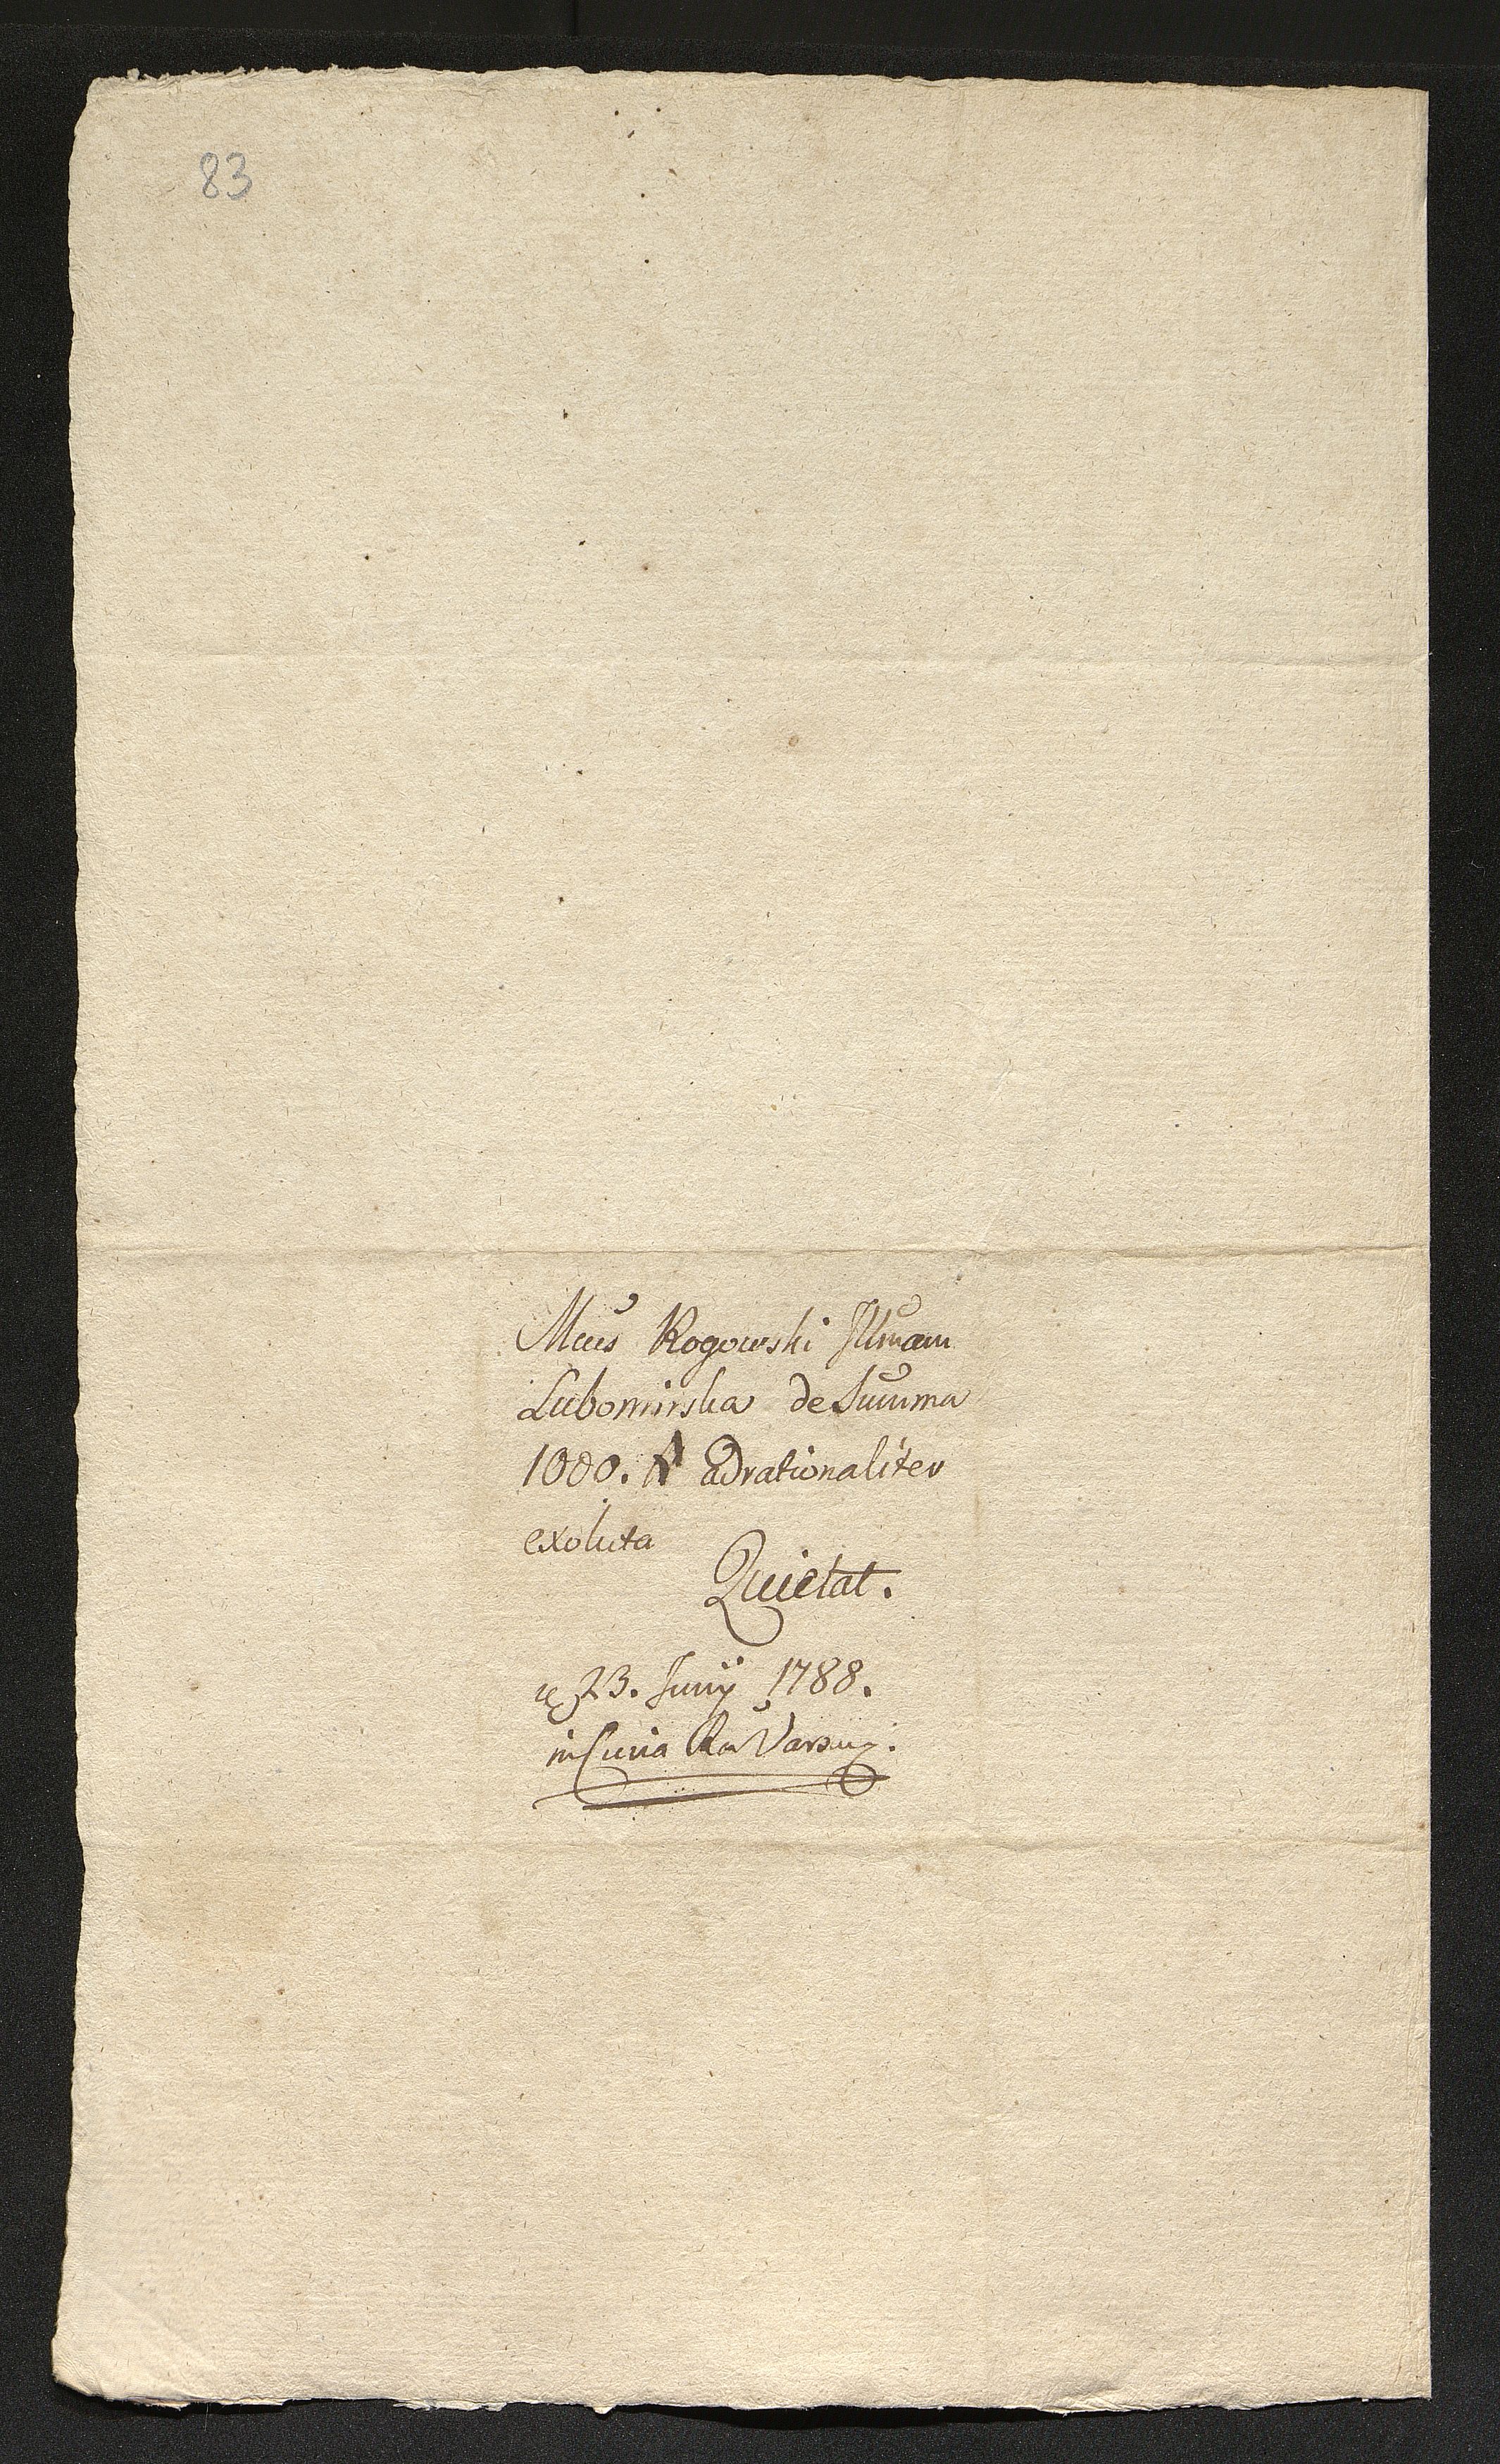 83
Mcus Rogowski Illmam
Lubomirska de Summa
1000. # adrationaliter
exoluta
Quietat.
23. Junij 1788.
in Curia Ra Varsav: